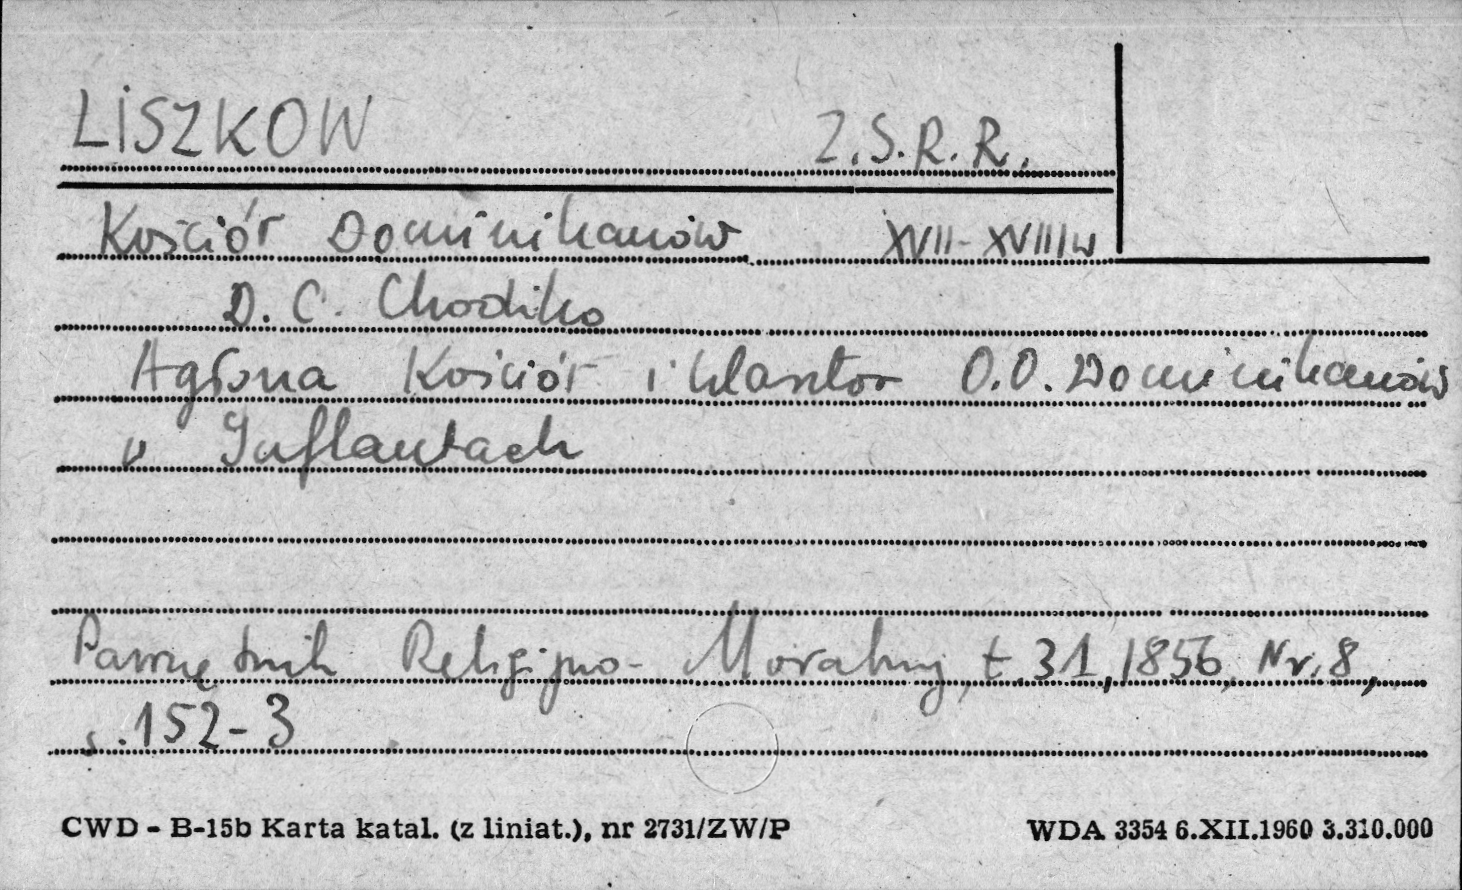 LISZKOW Z.S.R.R.
Kościół Dominikanów XVII-XVIII w
D. C. Chodźko
Agłona Kościół i klasztor O.O. Dominikanów
w Inflantach
Pamiętnik Religijno-Moralny, t.31, 1856, Nr.8,
s.152-3
CWD - B-15b Karta katal. (z liniat.), nr 2731/ZW/P WDA 3354 6.XII.1960 3.310.000